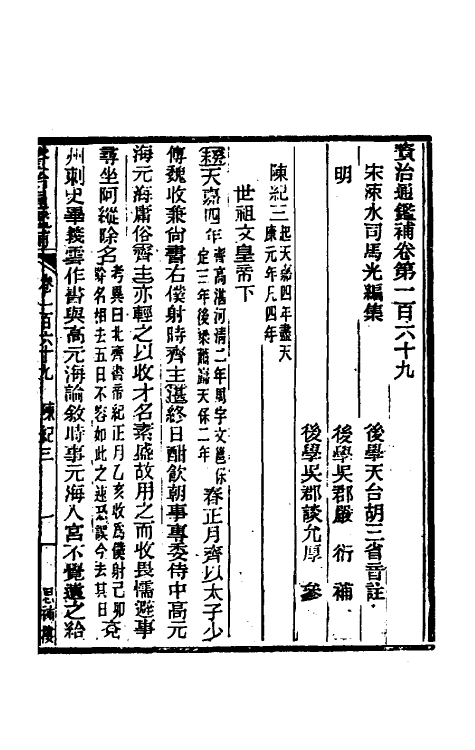 資治通鑑補卷第一百六十九
宋涑水司馬光編集　後學天台胡三省音註
明　後學吳郡嚴衍補
後學吳郡談允厚參
陳紀三起天嘉四年盡天
康元年凡四年
世祖文皇帝下
天嘉四年齊高湛河清二年周宇文邕保
定三年後梁蕭巋天保二年春正月齊以太子少
傅魏收兼尚書右僕射時齊主湛終日酣飲朝事專委侍中高元
海元海庸俗齊主亦輕之以收才名素盛故用之而收畏懦避事
尋坐阿縱除名考異曰北齊書帝紀正月乙亥收為僕射己卯
除名相去五日不容如此之速恐誤今去其日兗
州刺史畢義雲作書與高元海論敘時事元海入宮不覺遺之給
資治通鑑補　卷一百六十九　陳紀三　一　思補樓